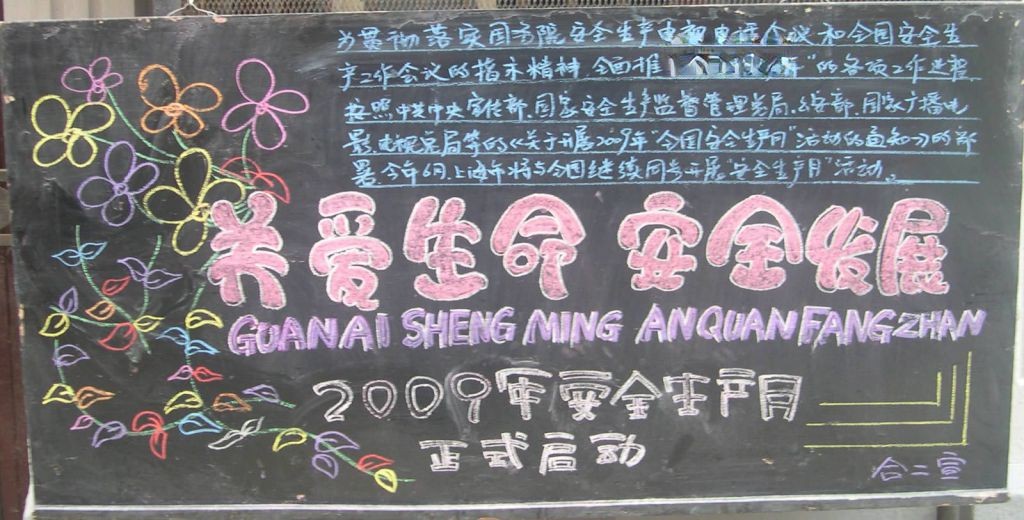 为贯彻落实国务院安全生产电视电话会议和全国安全生
产工作会议的指示精神,全面推 的各项工作进程
按照中共中央宣传部、国家安全生产监督管理总局、公安部、国家广播电
影电视总局等的《关于开展2009年"全国安全生产月"活动的通知》的部
署,今年6月,上海市将与全国继续同步开展"安全生产月"活动。
关爱生命 安全发展
GUANAI SHENG MING ANQUAN FANGZHAN
2009年安全生产月
正式启动
合二宣